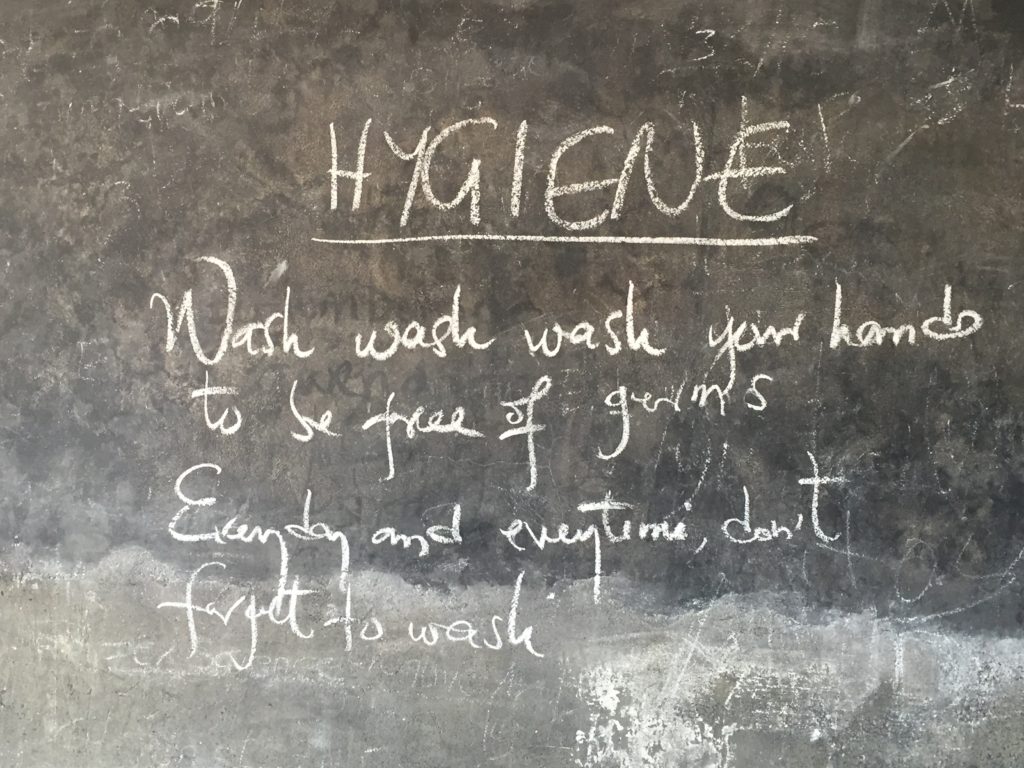 HYGIENE
Wash wash wash your hands
to be free of germs
Everyday and everytime, don't
forget to wash